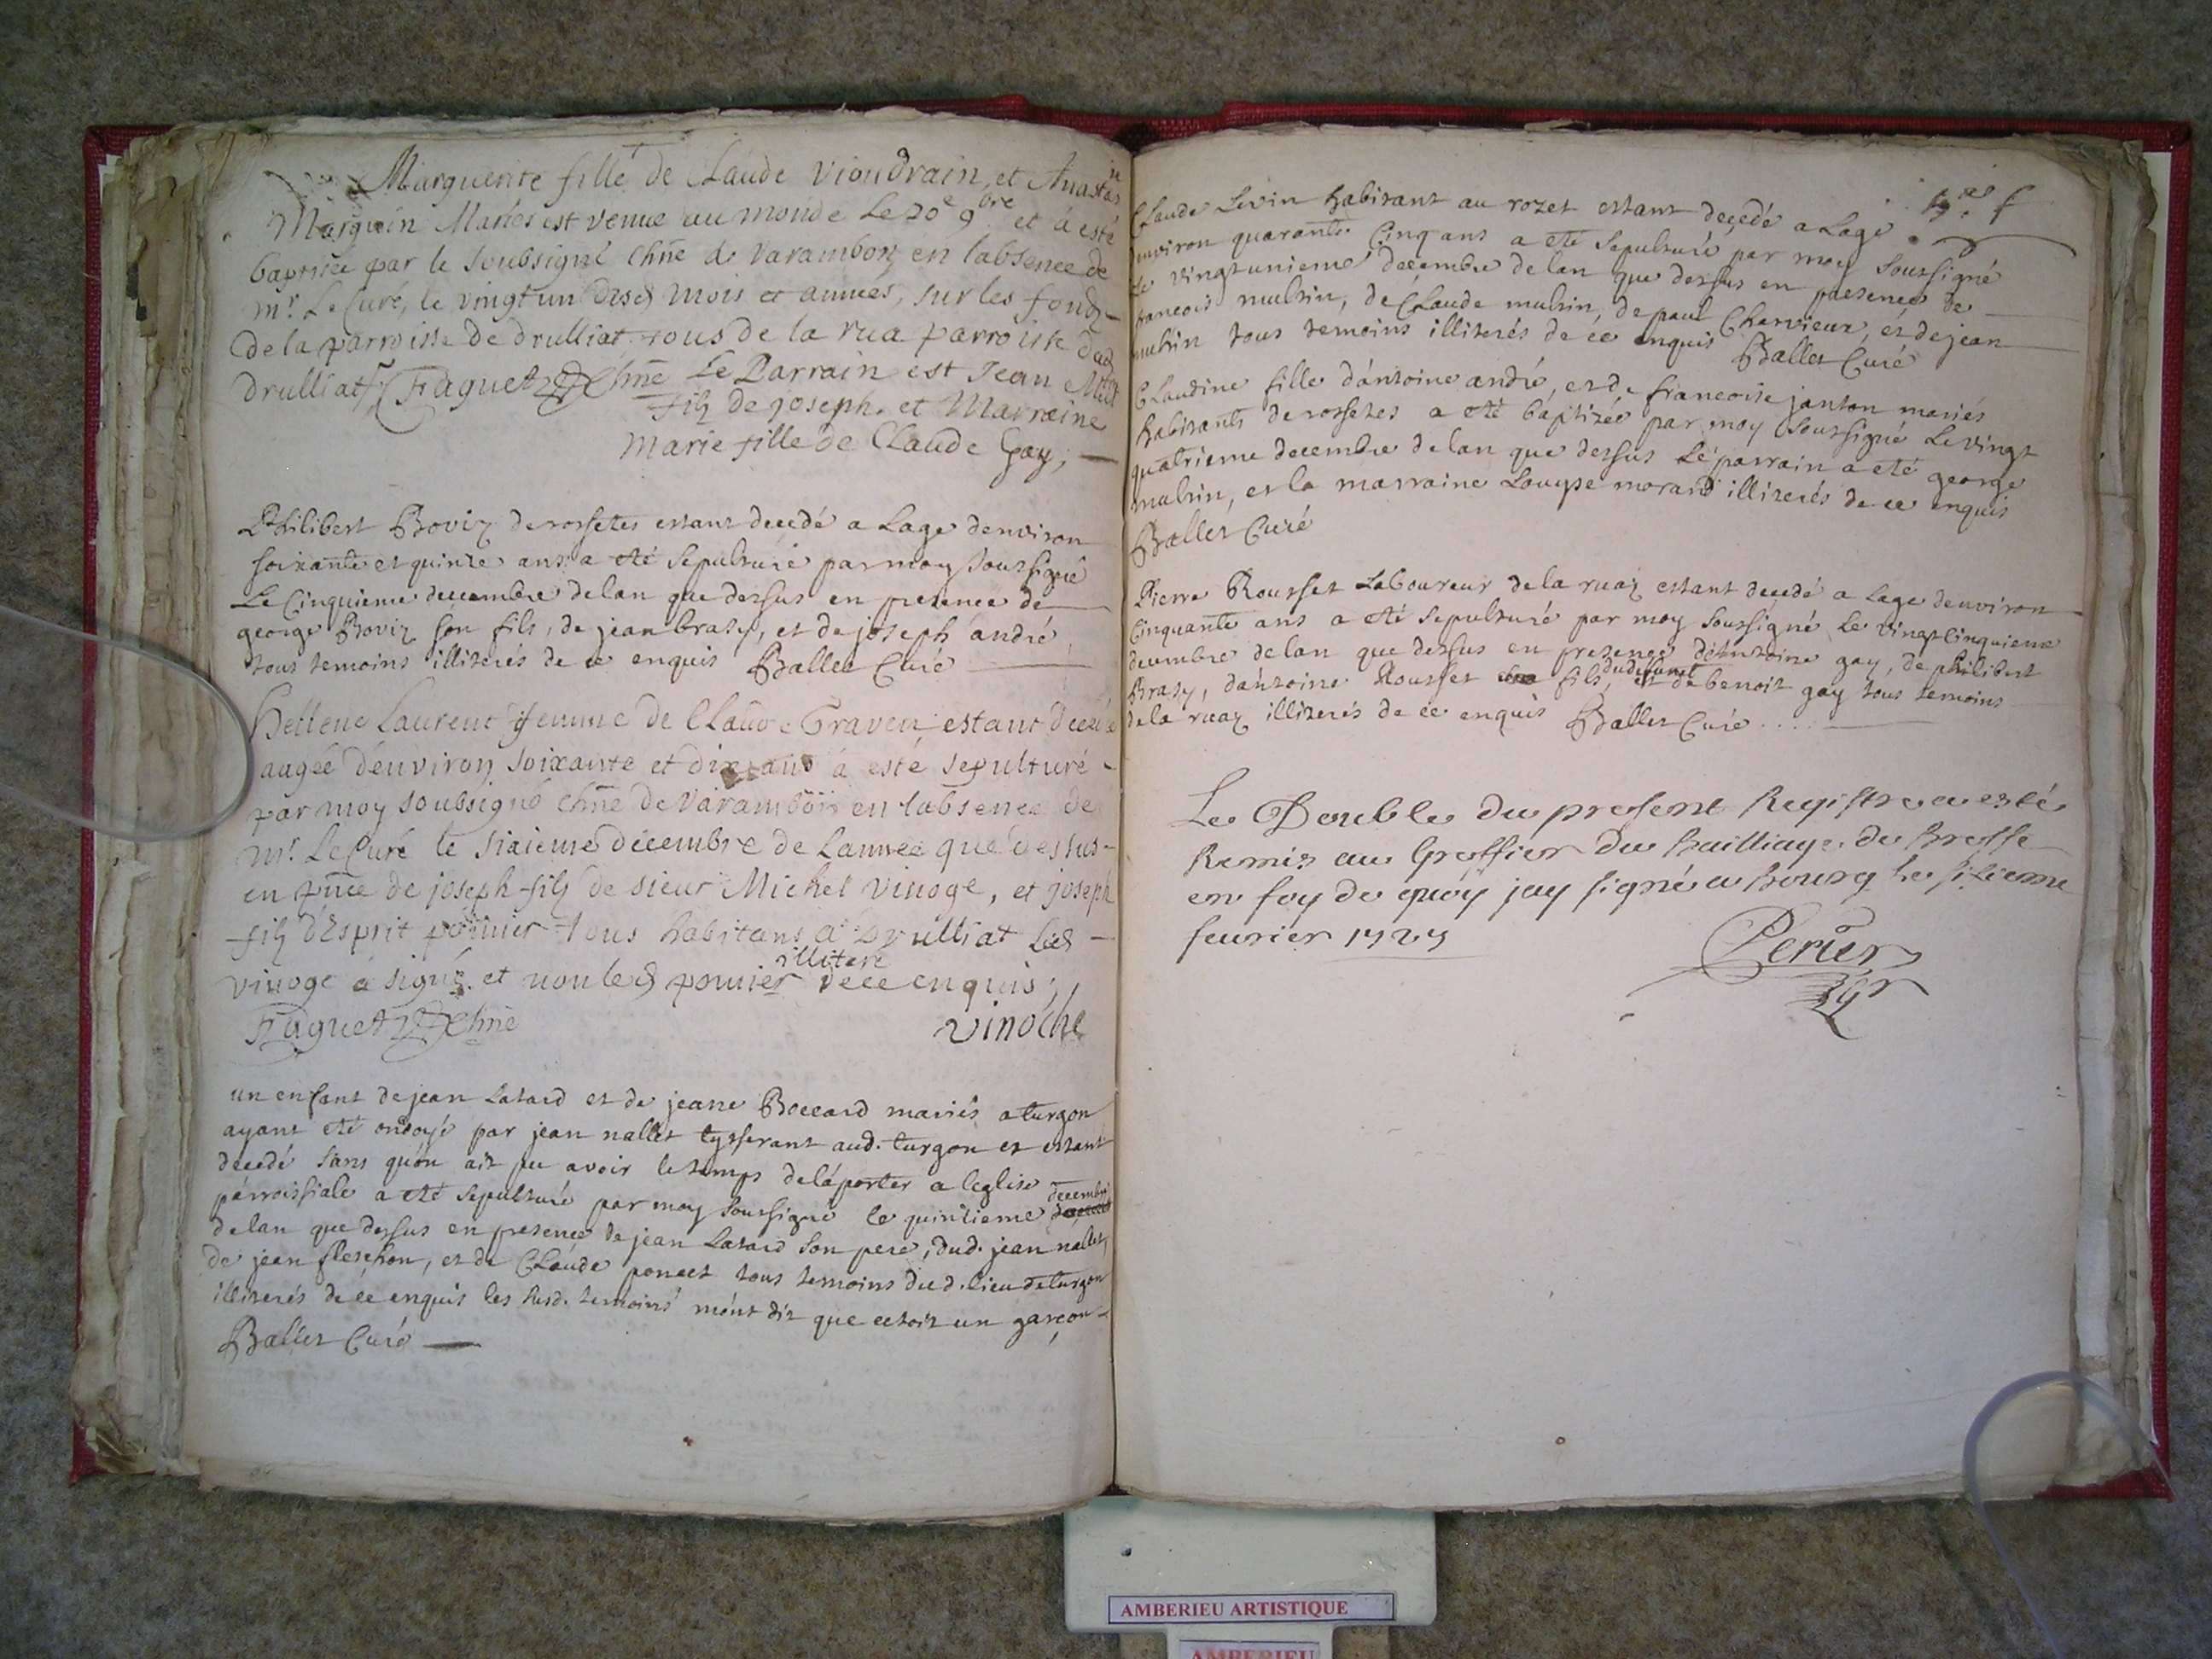 Marguerite fille de Claude Vioudrain, et Anastasie
Marguin Mariés est venue au monde Le 20e 9bre et à esté
baptisée par le soubsigné Chne de Varambon en l'absence de
mr. Le Curé, le vingt un desd mois et annees, sur les fondz
de la parroisse de druilliat, tous de la rua parroisse dud
drulliat Faguet Chne Le Parrain est Jean
filz de joseph. et Marraine
Marie fille de Claude Gay;
Philibert Boviz de rossetes estant decedé a Lage denviron
soixante et quinze ans a eté sepulturé par moy soussigné
Le Cinquieme decembre de lan que dessus en presence de
george Boviz son fils, de jean brasy, et de joseph andré
tous temoins illiterés de ce enquis Ballet Curé
Hellene Laurent femme de Claude Traven estant decedé
aagée d'environ soixante et dix ans à esté sepulturé
par moy soubsigné Chne de Varambon en l'absence de
mr. Le Curé le sixieme decembre de L'annee que dessus
en pnce de joseph filz de sieur Michel vinoge, et joseph
filz d'Esprit ponnier tous habitans a Drulliat Led
illiteré
vinoge à signé et non led ponnier de ce enquis;
Faguet Chne vinoche
un enfant de jean Latard et de jeane Boccard mariés a turgon
ayant eté ondoyé par jean nallet tysserant aud. turgon et estant
decedé sans qu'on ait pu avoir le temps de l'aporter a leglise
parroissiale a eté sepulturé par moy soussigné le quinzieme decembre
de lan que dessus en presence de jean Latard son pere, dud. jean nallet,
de jean fleschon, et de Claude poncet tous temoins dud. lieu de turgon
illiterés de ce enquis les susd. temoins m'ont dit que cetoit un garçon
Ballet Curé
Claude Levin habitant au rozet estant decedé a Lage
denviron quarante Cinq ans a eté sepulturé par moy soussigné
Le vingtunieme decembre de lan que dessus en presence de
francois mulrin, de Claude mulrin, de paul Charvieux, et de jean
mulrin tous temoins illiterés de ce enquis Ballet Curé
Claudine fille d'antoine andré, et de francoise janton mariés
habitants de rossetes a eté baptizée par moy soussigné Le vingt
quatrieme decembre de lan que dessus Le parrain a eté george
mulrin, et la marraine Louyse morard illiterés de ce enquis
Ballet Curé
Pierre Rousset Laboureur de la ruaz estant decedé a Lage denviron
Cinquante ans a eté sepulturé par moy soussigné Le vingtcinquieme
decembre de lan que dessus en presence d'antoine gay, de philibert
Brasy, d'antoine Rousset fils dudefunt, et de benoit gay tous temoins
de la ruaz illiterés de ce enquis Ballet Curé
Le Double du present Registre a esté
Remis au Greffier du bailliage de bresse
en foy de quoy jay signé a bourg le sizieme
feurier 1725
Perier